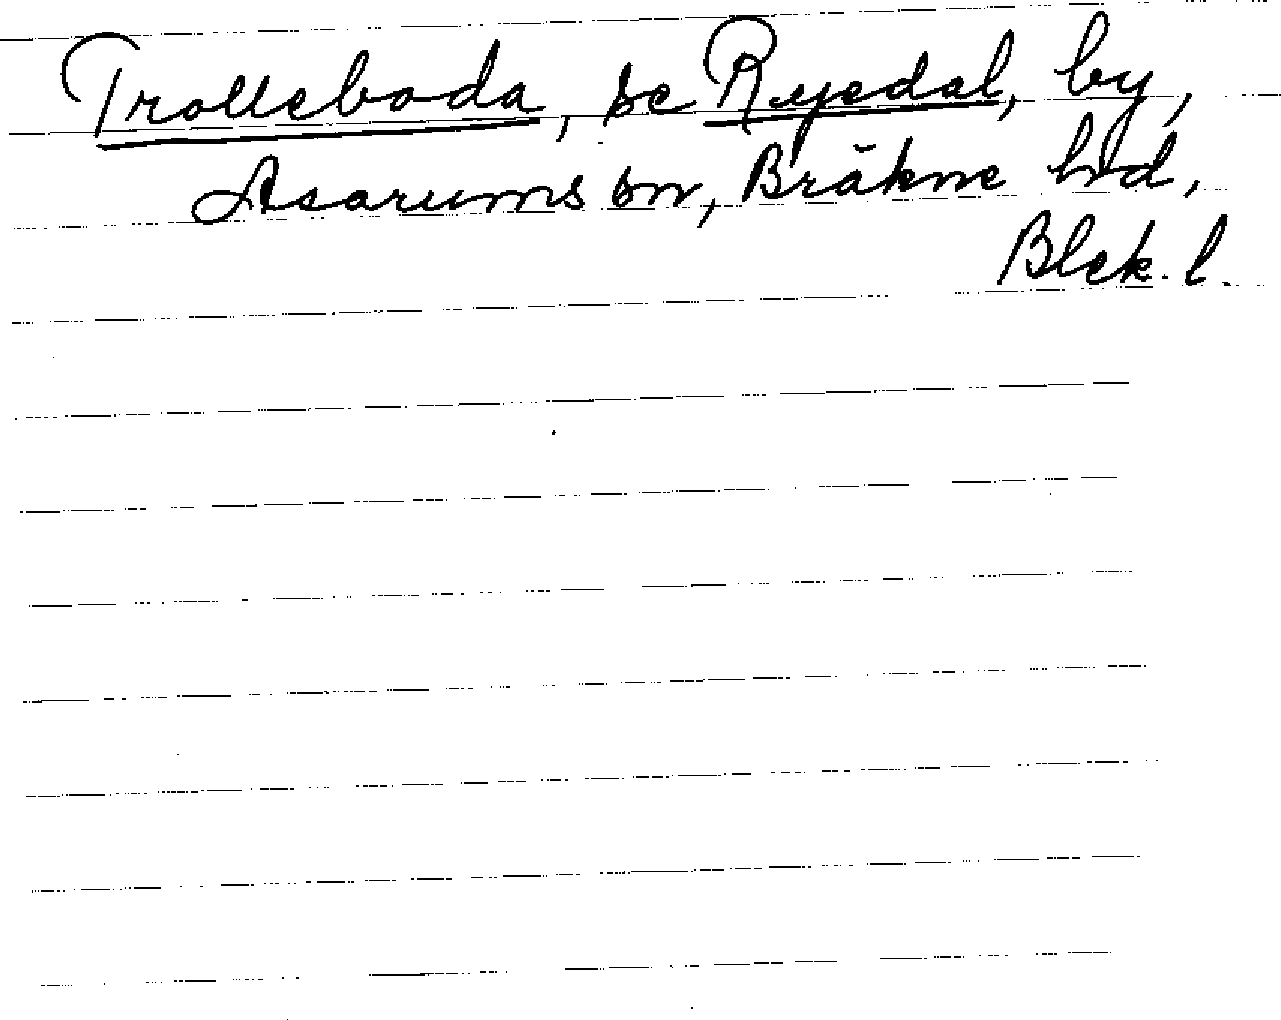 Trolleboda, se Ryedal, by,
Asarums sn, Bräkne hd,
Blek. l.